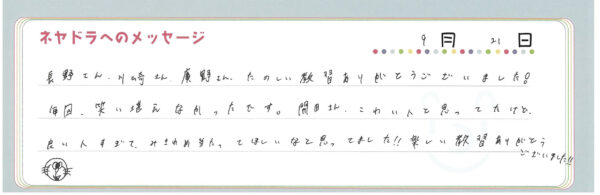 ネヤドラへのメッセージ
9月 21日
長野さん、川崎さん、廣野さん、たのしい教習ありがとうございました!
毎回、笑い堪えなかったです。関田さん、こわい人と思ってたけど、
良い人すぎて、みきわめ当たってほしいなと思ってました!!楽しい教習ありがとう
ございました!!